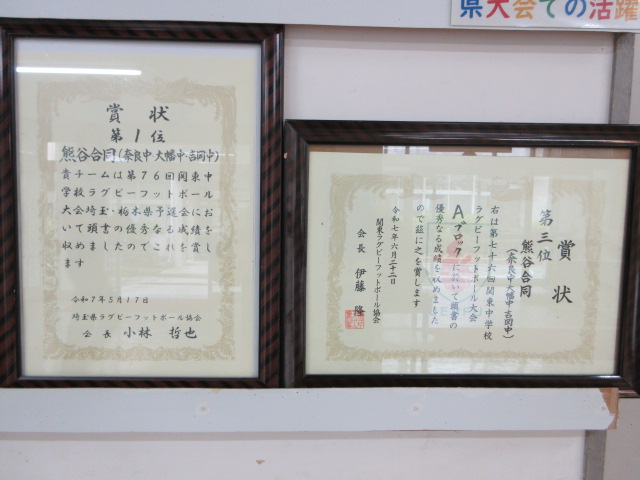 県大会での活躍
賞状
第1位
熊谷合同(奈良中・大幡中・吉岡中)
貴チームは第76回関東中
学校ラグビーフットボール
大会埼玉・栃木県予選会にお
いて頭書のとおり優秀なる成績を
収めましたのでこれを賞し
ます
令和7年5月17日
埼玉県ラグビーフットボール協会
会長 小林 哲也
賞状
第三位
熊谷合同
(奈良中・大幡中・吉岡中)
右は第七十六回関東中学校
ラグビーフットボール大会
Aブロックにおいて頭書の
優秀なる成績を収めました
ので茲に之を賞します
令和七年六月二十二日
関東ラグビーフットボール協会
会長 伊藤 隆